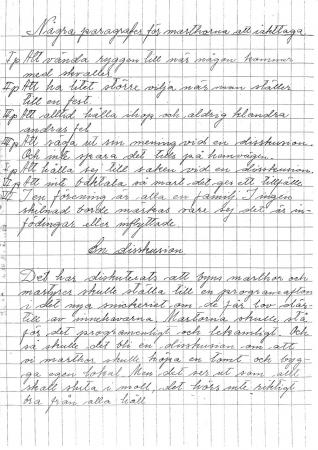 Några paragrafer för marthorna att iakttaga
I p Att vända ryggen till när någon kommer
med skvaller.
II p Att ha litet större vilja när man ställer
till en fest.
III p Att alltid hålla ihop och aldrig klandra
andras fel
IIII p Att säga ut sin mening vid en disskusion.
Och inte spara det tills på hemvägen.
p Att hålla sej till saken vid en disskusion.
p Att int baktala så mart det ges ett tillfälle.
I en förening är alla en familj. Ingen
skillnad borde märkas vare sej det är in-
födingar eller inflyttade.
En disskusion
Det har diskuterats att byns marthor och
martyrer skulle ställa till en programafton
i det nya snickeriet om de får lov där-
till av innehavarna. Martorna skulle stå
för det programenligt och lekamligt. Och
så skulle det bli en disskusion om att
vi marthor skulle köpa en tomt och byg-
ga egen lokal. Men det ser ut som allt
skall sluta i moll, det hörs inte riktigt
bra från alla håll